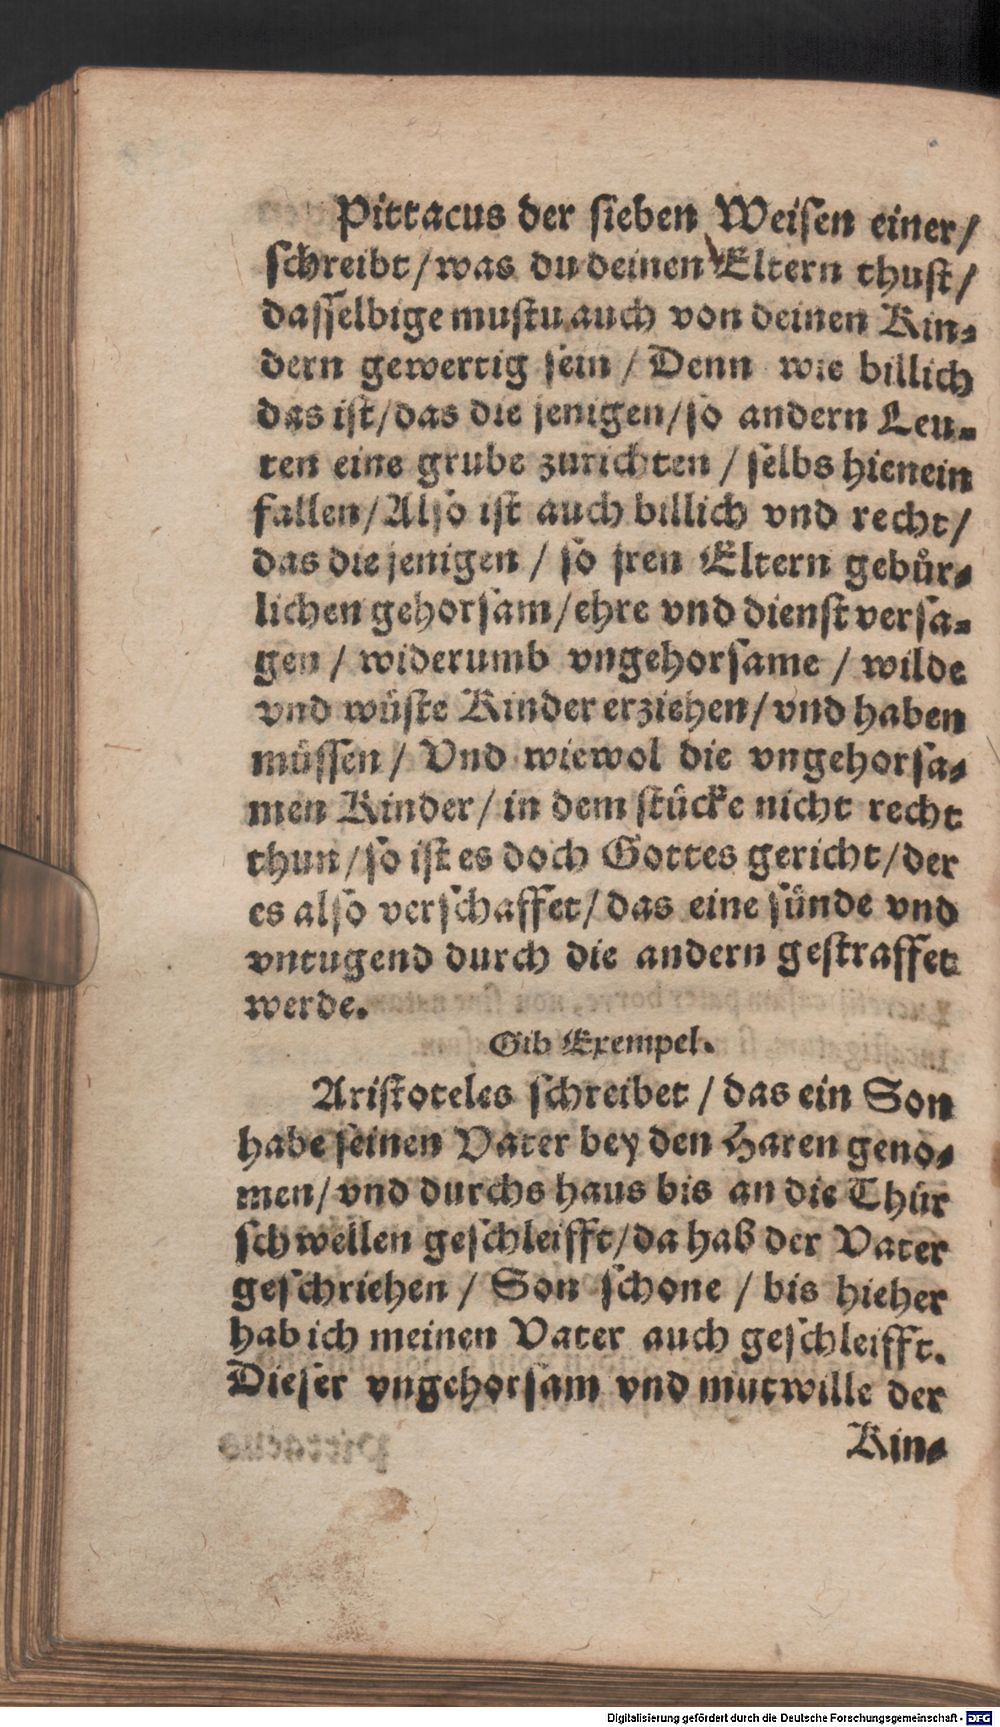 Pittacus der sieben Weisen einer/
schreibt/was du deinen Eltern thust/
dasselbige mustu auch von deinen Kin-
dern gewertig sein / Denn wie billich
das ist/das die jenigen/so andern Leu-
ten eine grube zurichten / selbs hienein
fallen/Also ist auch billich vnd recht/
das die jenigen / so jren Eltern gebuͤr-
lichen gehorsam/ehre vnd dienst versa-
gen / widerumb vngehorsame / wilde
vnd wuͤste Kinder erziehen/vnd haben
muͤssen / Vnd wiewol die vngehorsa-
men Kinder/in dem stuͤcke nicht recht
thun/so ist es doch Gottes gericht/der
es also verschaffet/das eine suͤnde vnd
vntugend durch die andern gestraffet
werde.
Gib Exempel.
Aristoteles schreibet / das ein Son
habe seinen Vater bey den Haren geno-
men/vnd durchs haus bis an die Thuͤr
schwellen geschleifft/da hab der Vater
geschriehen / Son schone / bis hieher
hab ich meinen Vater auch geschleifft.
Dieser vngehorsam vnd mutwille der
Kin-
Digitalisierung gefördert durch die Deutsche Forschungsgemeinschaft - DFG